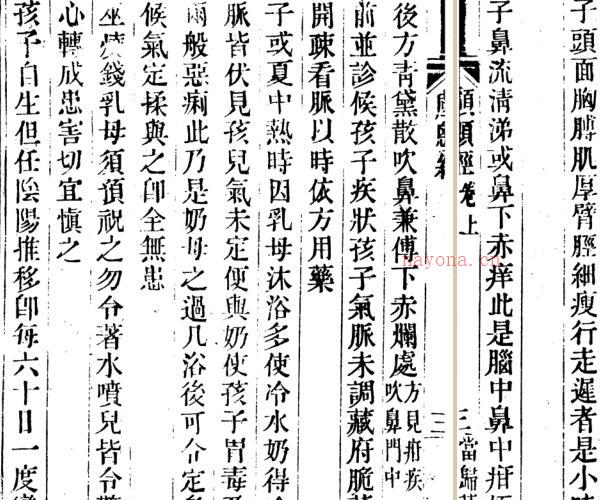 子頭面胸膊肌厚臂脛細瘦行走遲者是小
子鼻流清涕或鼻下赤痒此是腦中鼻中疳
顱顖經卷上
三 當歸
後方青黛散吹鼻兼傅下赤爛處方見疳疾吹鼻門中
前並診候孩子疾狀孩子氣脈未調藏府脆
開疎看脈以時依方用藥
子或夏中熱時因乳母沐浴多使冷水奶得
脈皆伏見孩兒氣未定便與奶使孩子胃毒
兩般惡痢此乃是奶母之過凡浴後可令定
候氣定揉與之卽全無患
錢乳母須預祝之勿令著水噴兒皆令
心轉成患害切宜愼之
孩子自生但任陰陽推移卽每六十日一度
nayona.cn